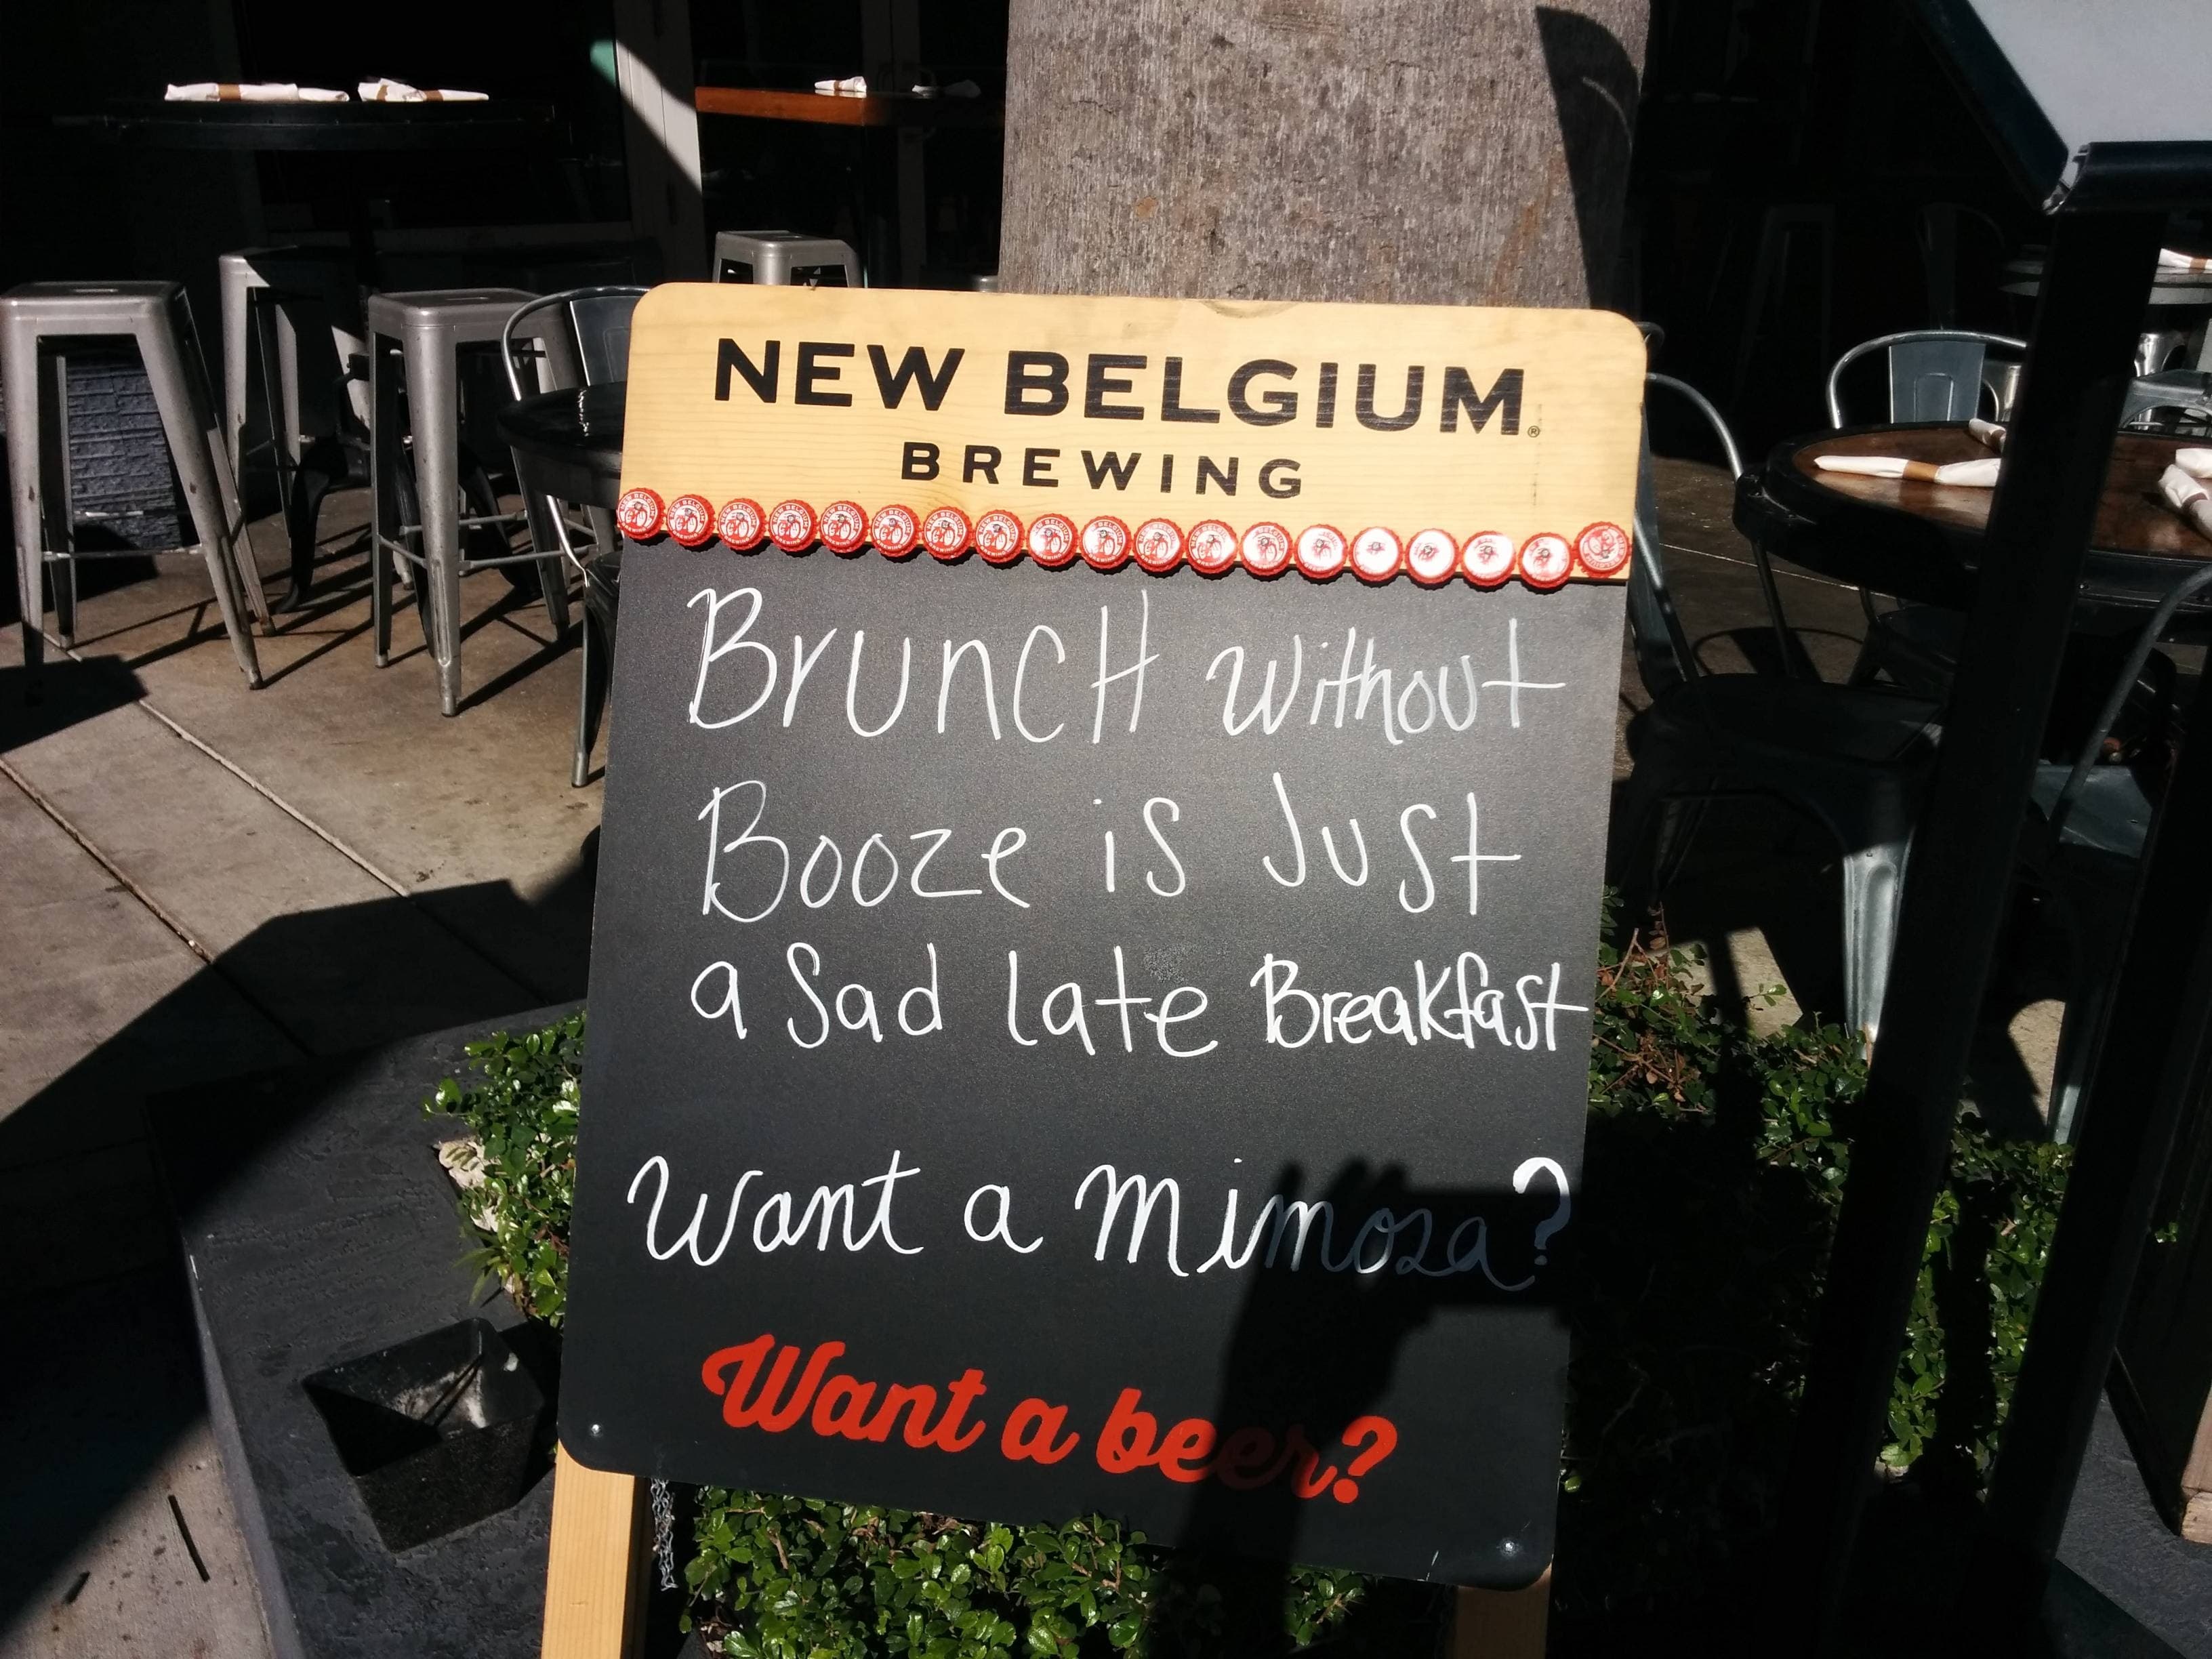 NEW BELGIUM®
BREWING
Brunch without
Booze is Just
a Sad Late Breakfast
Want a Mimosa?
Want a beer?